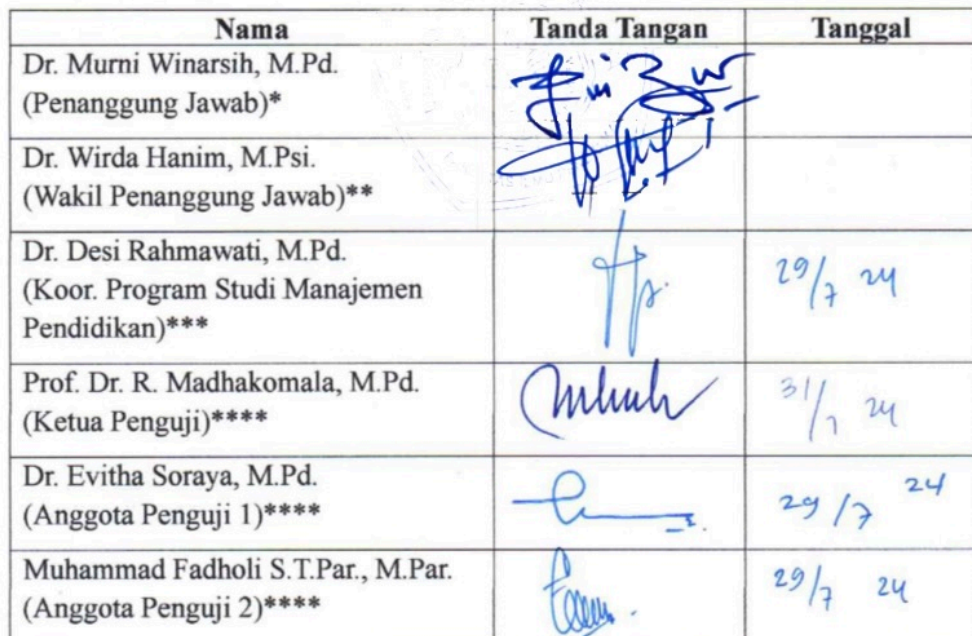 Nama Tanda Tangan Tanggal
Dr. Murni Winarsih, M.Pd.
(Penanggung Jawab)*
Dr. Wirda Hanim, M.Psi.
(Wakil Penanggung Jawab)**
Dr. Desi Rahmawati, M.Pd.
(Koor. Program Studi Manajemen
Pendidikan)***
29/7 24
Prof. Dr. R. Madhakomala, M.Pd.
(Ketua Penguji)****
31/7 24
Dr. Evitha Soraya, M.Pd.
(Anggota Penguji 1)****
29/7 24
Muhammad Fadholi S.T.Par., M.Par.
(Anggota Penguji 2)****
29/7 24